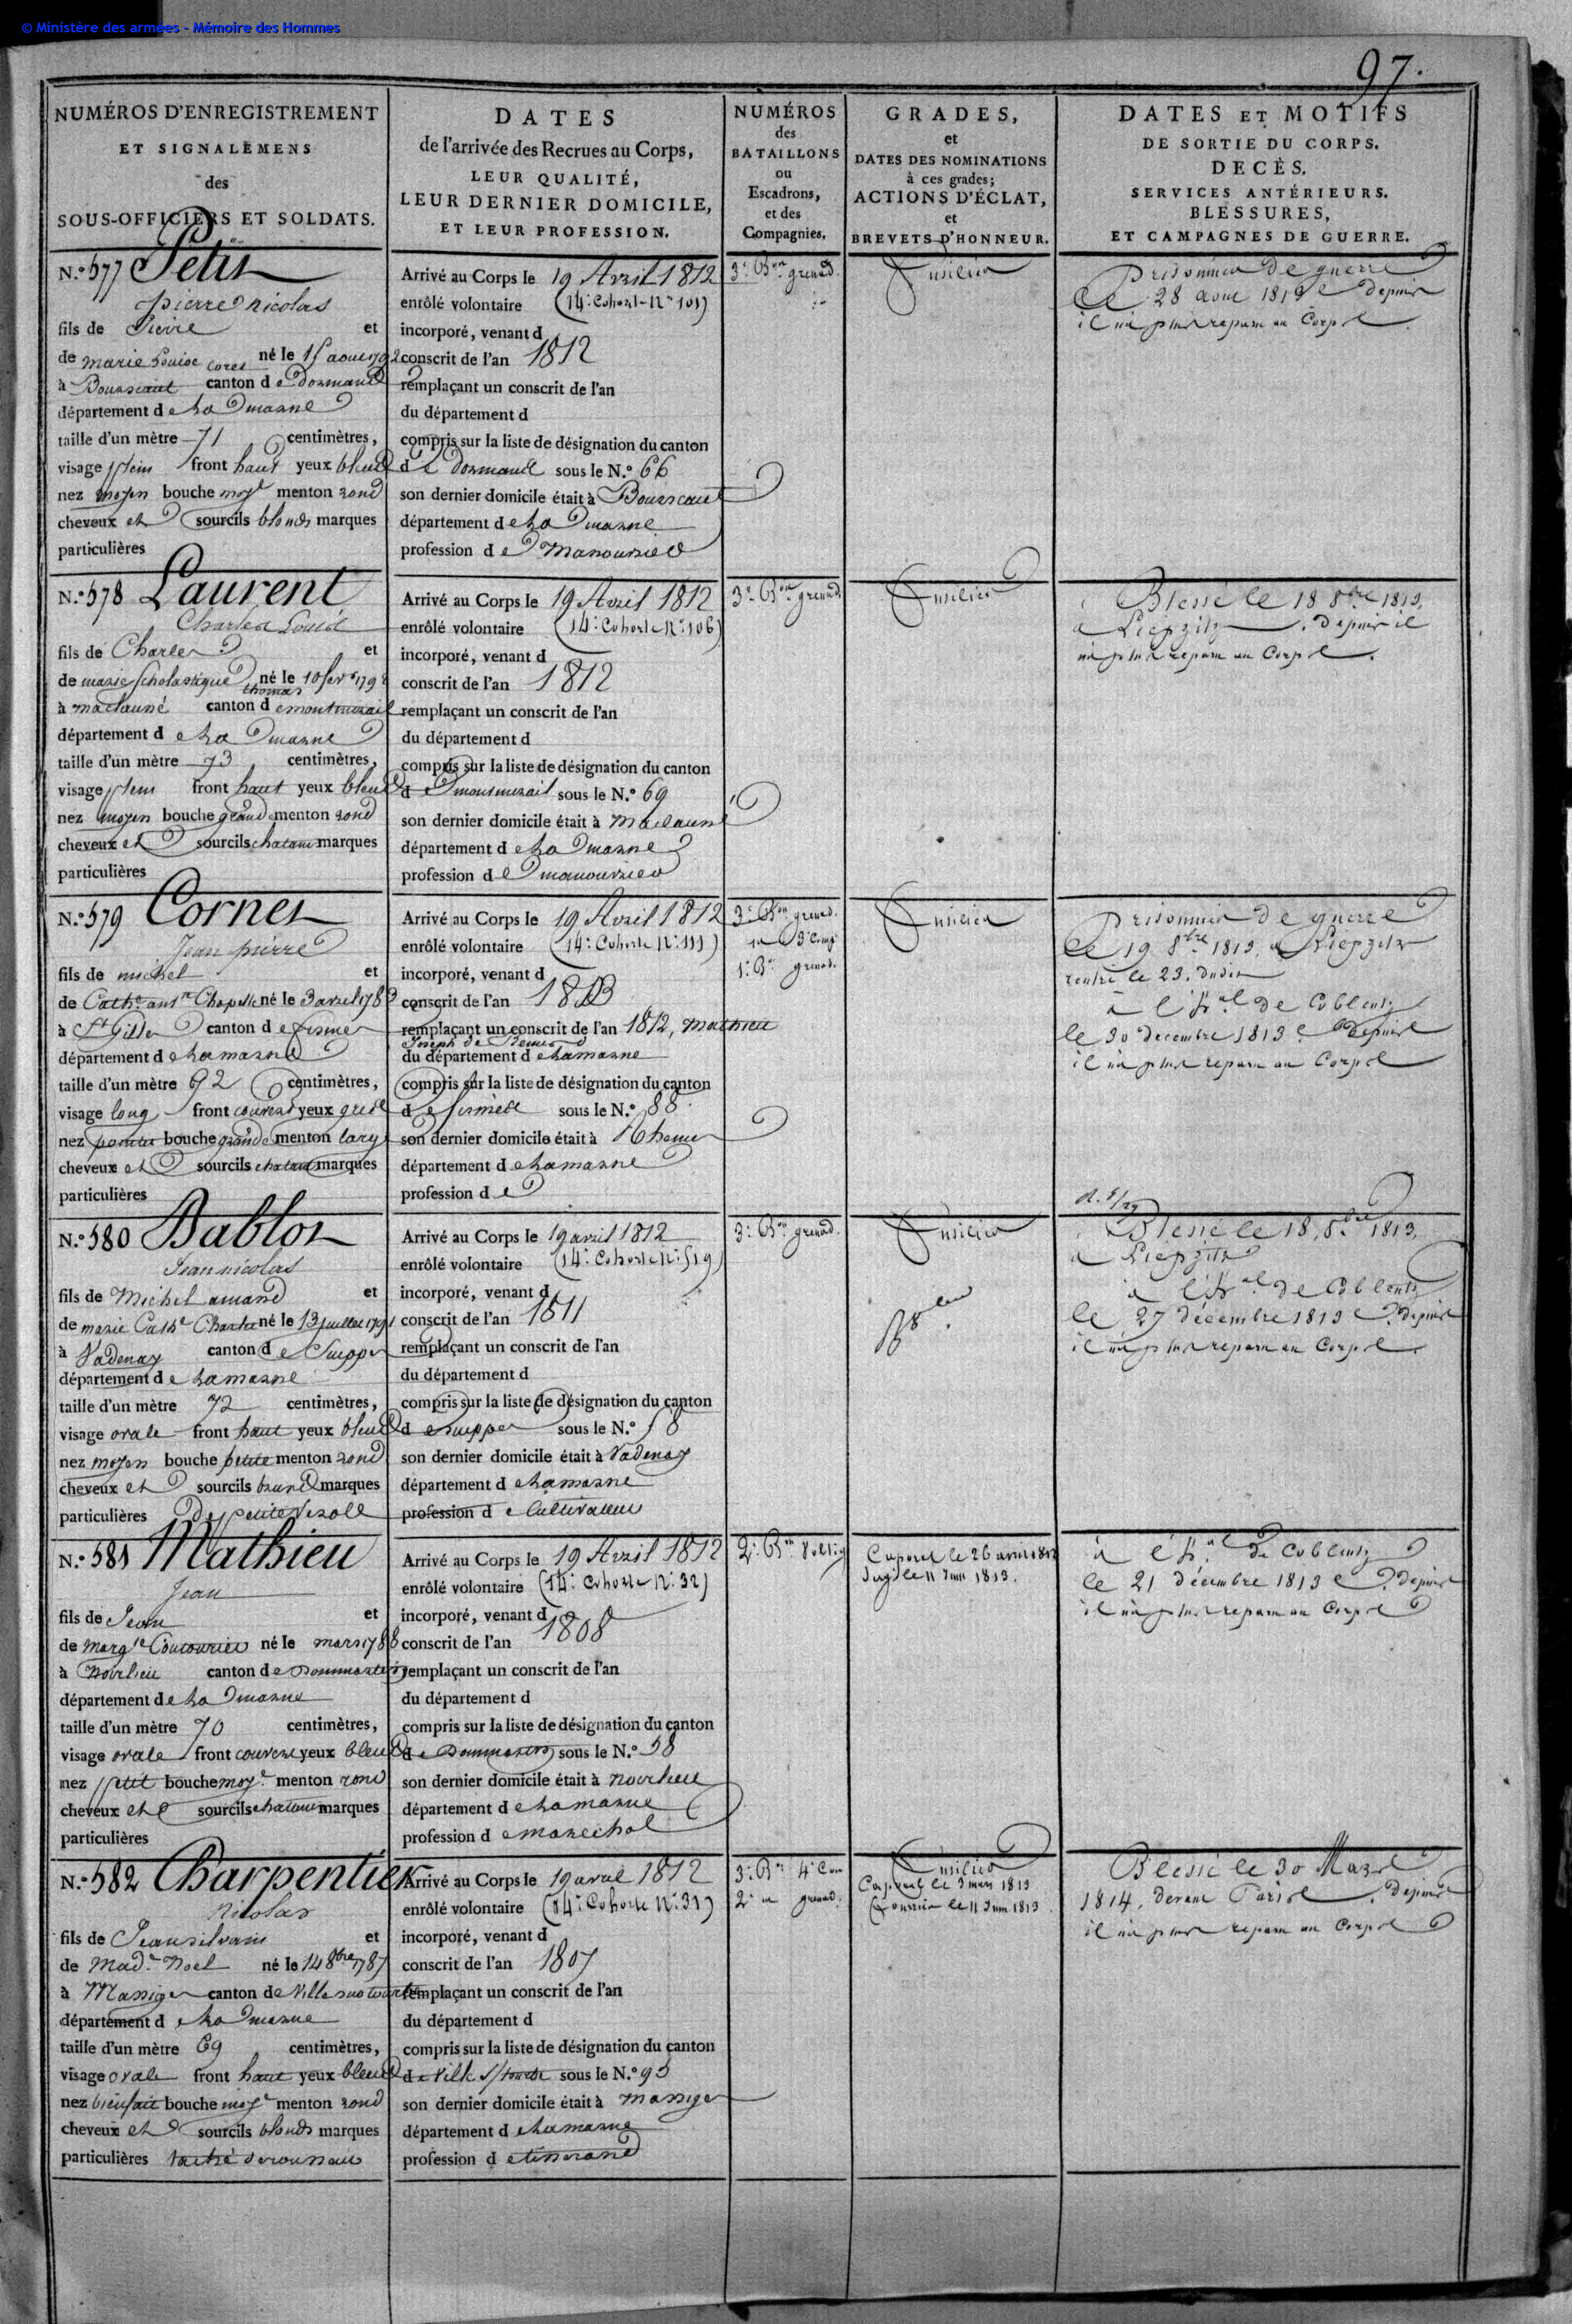 © Ministère des armées - Mémoire des Hommes
97.
NUMÉROS D'ENREGISTREMENT
ET SIGNALÉMENS
des
SOUS-OFFICIERS ET SOLDATS.
DATES
de l'arrivée des Recrues au Corps,
LEUR QUALITÉ,
LEUR DERNIER DOMICILE,
ET LEUR PROFESSION.
NUMÉROS
des
BATAILLONS
ou
Escadrons,
et des
Compagnies.
GRADES,
et
DATES DES NOMINATIONS
à ces grades;
ACTIONS D'ÉCLAT,
et
BREVETS D'HONNEUR.
DATES ET MOTIFS
DE SORTIE DU CORPS.
DECÈS.
SERVICES ANTÉRIEURS.
BLESSURES,
ET CAMPAGNES DE GUERRE.
N.° 577 Petit
pierre nicolas
fils de Pierre et
de marie Louise né le 15 aout 1792
à Boursault canton de Dormans
département de La marne
taille d'un mètre 71 centimètres,
visage plein front haut yeux bleus
nez moyen bouche moye menton rond
cheveux et sourcils blonds marques
particulières
Arrivé au Corps le 19 Avril 1812
enrôlé volontaire (14e Cohorte No 101)
incorporé, venant d
conscrit de l'an 1812
remplaçant un conscrit de l'an
du département d
compris sur la liste de désignation du canton
de Dormans sous le N.° 66
son dernier domicile était à Boursault
département de La marne
profession de Manouvrier
3e Bon grenad.
Fusilier
Prisonnier de guerre
Le 28 aout 1813. Depuis
il n'a plus reparu au Corps.
N.° 578 Laurent
Charles Louis
fils de Charles et
de marie Scholastique thomas né le 10 fevr 179
à maclauné canton de montmirail
département de La marne
taille d'un mètre 73 centimètres,
visage plein front haut yeux bleus
nez moyen bouche grande menton rond
cheveux et sourcils chatains marques
particulières
Arrivé au Corps le 19 Avril 1812
enrôlé volontaire (14e Cohorte No 106)
incorporé, venant d
conscrit de l'an 1812
remplaçant un conscrit de l'an
du département d
compris sur la liste de désignation du canton
de montmirail sous le N.° 69
son dernier domicile était à Maclauné
département de La marne
profession de manouvrier
3e Bon grenad
Fusilier
Blessé le 18 8bre 1813,
a Liepzitz. depuis il
n'a plus reparu au Corps.
N.° 579 Cornet
Jean pierre
fils de michel et
de Cathe Chapelle né le 3 avril 178
à St Gilles canton de fismes
département de La marne
taille d'un mètre 92 centimètres,
visage long front couvert yeux gris
nez pointu bouche grande menton large
cheveux et sourcils chatains marques
particulières
Arrivé au Corps le 19 Avril 1812
enrôlé volontaire (14e Cohorte No 111)
incorporé, venant d
conscrit de l'an 1803
remplaçant un conscrit de l'an 1812, Mathieu
Joseph de Reims
du département de La marne
compris sur la liste de désignation du canton
de fismes sous le N.° 88
son dernier domicile était à Rheims
département de La marne
profession de
3e Bon grenad.
1er Bon grenad.
Fusilier
Prisonnier de guerre
Le 19 8bre 1813, a Liepzitz
rentré le 23. dudit
à l'hal de Coblentz
le 30 decembre 1813. Depuis
il n'a plus reparu au Corps
N.° 580 Bablot
Jean nicolas
fils de Michel amand et
de marie Cathe né le 13 juillet 1791
à Vadenay canton de Suippes
département de La marne
taille d'un mètre 72 centimètres,
visage ovale front haut yeux bleus
nez moyen bouche petite menton rond
cheveux et sourcils bruns marques
particulières de petite verole
Arrivé au Corps le 19 avril 1812
enrôlé volontaire (14e Cohorte No 519)
incorporé, venant d
conscrit de l'an 1811
remplaçant un conscrit de l'an
du département d
compris sur la liste de désignation du canton
de suippes sous le N.° 58
son dernier domicile était à Vadenay
département de La marne
profession de Cultivateur
3e Bon grenad.
Fusilier
Blessé le 18, 8bre 1813,
a Liepzitz
à l'hal de Coblentz
le 27 décembre 1813. depuis
il n'a plus reparu au Corps.
N.° 581 Mathieu
Jean
fils de Jean et
de Margte Couturier né le mars 1788
à Noirlieu canton de Dommartin
département de La marne
taille d'un mètre 70 centimètres,
visage ovale front couvert yeux bleus
nez petit bouche moye menton rond
cheveux et sourcils chatains marques
particulières
Arrivé au Corps le 19 Avril 1812
enrôlé volontaire (14e Cohorte No 32)
incorporé, venant d
conscrit de l'an 1808
remplaçant un conscrit de l'an
du département d
compris sur la liste de désignation du canton
de Dommartin sous le N.° 58
son dernier domicile était à Noirlieu
département de La marne
profession de marechal
2e Bon Voltig
Caporal le 26 avril 1812
le 11 Juin 1813.
à l'hal de Coblentz
le 21 décembre 1813. depuis
il n'a plus reparu au Corps
N.° 582 Charpentier
Nicolas
fils de Jean silvain et
de Made Noel né le 14 8bre 1787
à Massiges canton de Ville sur tourbe
département de La marne
taille d'un mètre 69 centimètres,
visage ovale front haut yeux bleus
nez bienfait bouche moye menton rond
cheveux et sourcils blonds marques
particulières taché de rousseur
Arrivé au Corps le 19 avril 1812
enrôlé volontaire (14e Cohorte No 31)
incorporé, venant d
conscrit de l'an 1807
remplaçant un conscrit de l'an
du département d
compris sur la liste de désignation du canton
de Ville s/ tourbe sous le N.° 95
son dernier domicile était à Massiges
département de La marne
profession de tisserand
3e Bon 4e Com
2e grenad.
Fusilier
Caporal le 3 mars 1813
Fourrier le 11 Juin 1813
Blessé le 30 Mars
1814, devant Paris. depuis
il n'a plus reparu au Corps